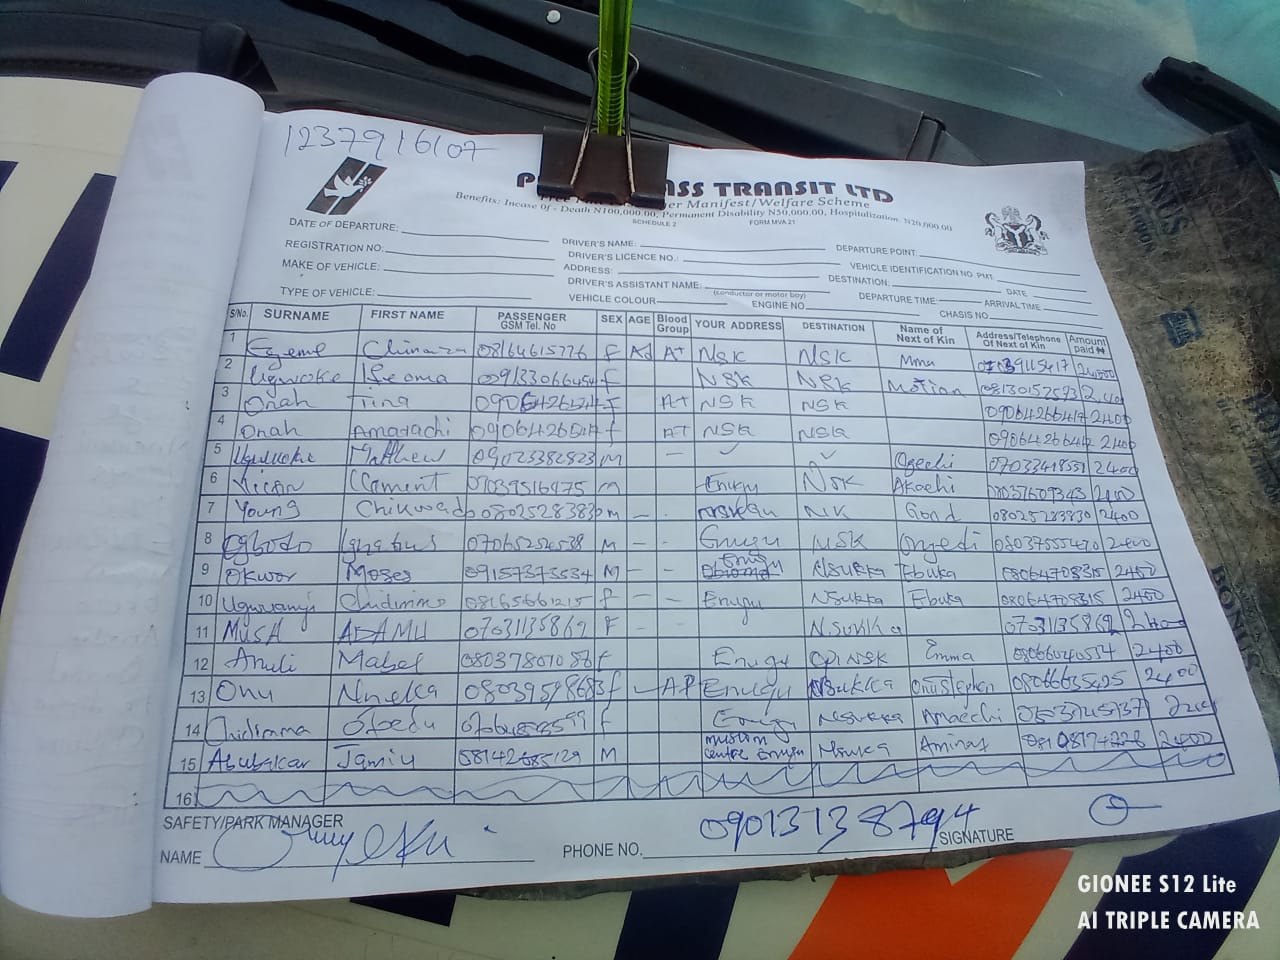 1237916107
ASS TRANSIT LTD
Manifest/Welfare Scheme
Benefits: Incase Of - Death N100,000.00, Permanent Disability N50,000.00, Hospitalization N20,000.00
SCHEDULE 2 FORM MVA 21
DATE OF DEPARTURE: DRIVER'S NAME: DEPARTURE POINT:
REGISTRATION NO: DRIVER'S LICENCE NO.: VEHICLE IDENTIFICATION NO. PMT.
MAKE OF VEHICLE: ADDRESS: DESTINATION: DATE
TYPE OF VEHICLE: DRIVER'S ASSISTANT NAME: (conductor or motor boy) DEPARTURE TIME: ARRIVAL TIME
VEHICLE COLOUR ENGINE NO CHASIS NO
S/No. SURNAME FIRST NAME PASSENGER GSM Tel. No SEX AGE Blood Group YOUR ADDRESS DESTINATION Name of Next of Kin Address/Telephone Of Next of Kin Amount paid ₦
1 Ezeme Chinaza 08164615776 F Ad A+ NSK NSK Mma
2 Ugwoke Ifeoma f NSK NSK 08130152573 2400
3 Onah Tina f A+ NSK NSK 09064266417 2400
4 Onah Amarachi f A+ NSK NSK 09064266417 2400
5 Ugwuoke Matthew 09023382823 M - ✓ ✓ Ogechi 07033418551 2400
6 Clement 07039516975 M Enugu NSK 2400
7 Young M - NK 08025283830 2400
8 Ogbodo Ignatius 07065254538 M - - Enugu NSK Onyedi 08037555420 2400
9 Okwor Moses 09157373534 M - - Enugu Nsukka Ebuka 08064708315 2400
10 Ugwuanyi Chidimma 08165661215 f - - Enugu Nsukka Ebuka 08064708315 2400
11 Musa ADAMU 07031135869 F Nsukka 07031135869 2400
12 Anuli Mabel f Enugu NSK Emma 08066040554 2400
13 Onu Nneka f Enugu Nsukka Onu Stephen 08066635425 2400
14 Chidimma f Enugu Nsukka Amaechi
15 Abubakar Jamiu 08142685129 M muslim centre Enugu Nsuka Aminat 2400
16
SAFETY/PARK MANAGER
NAME PHONE NO. 09013138794 SIGNATURE
GIONEE S12 Lite
AI TRIPLE CAMERA